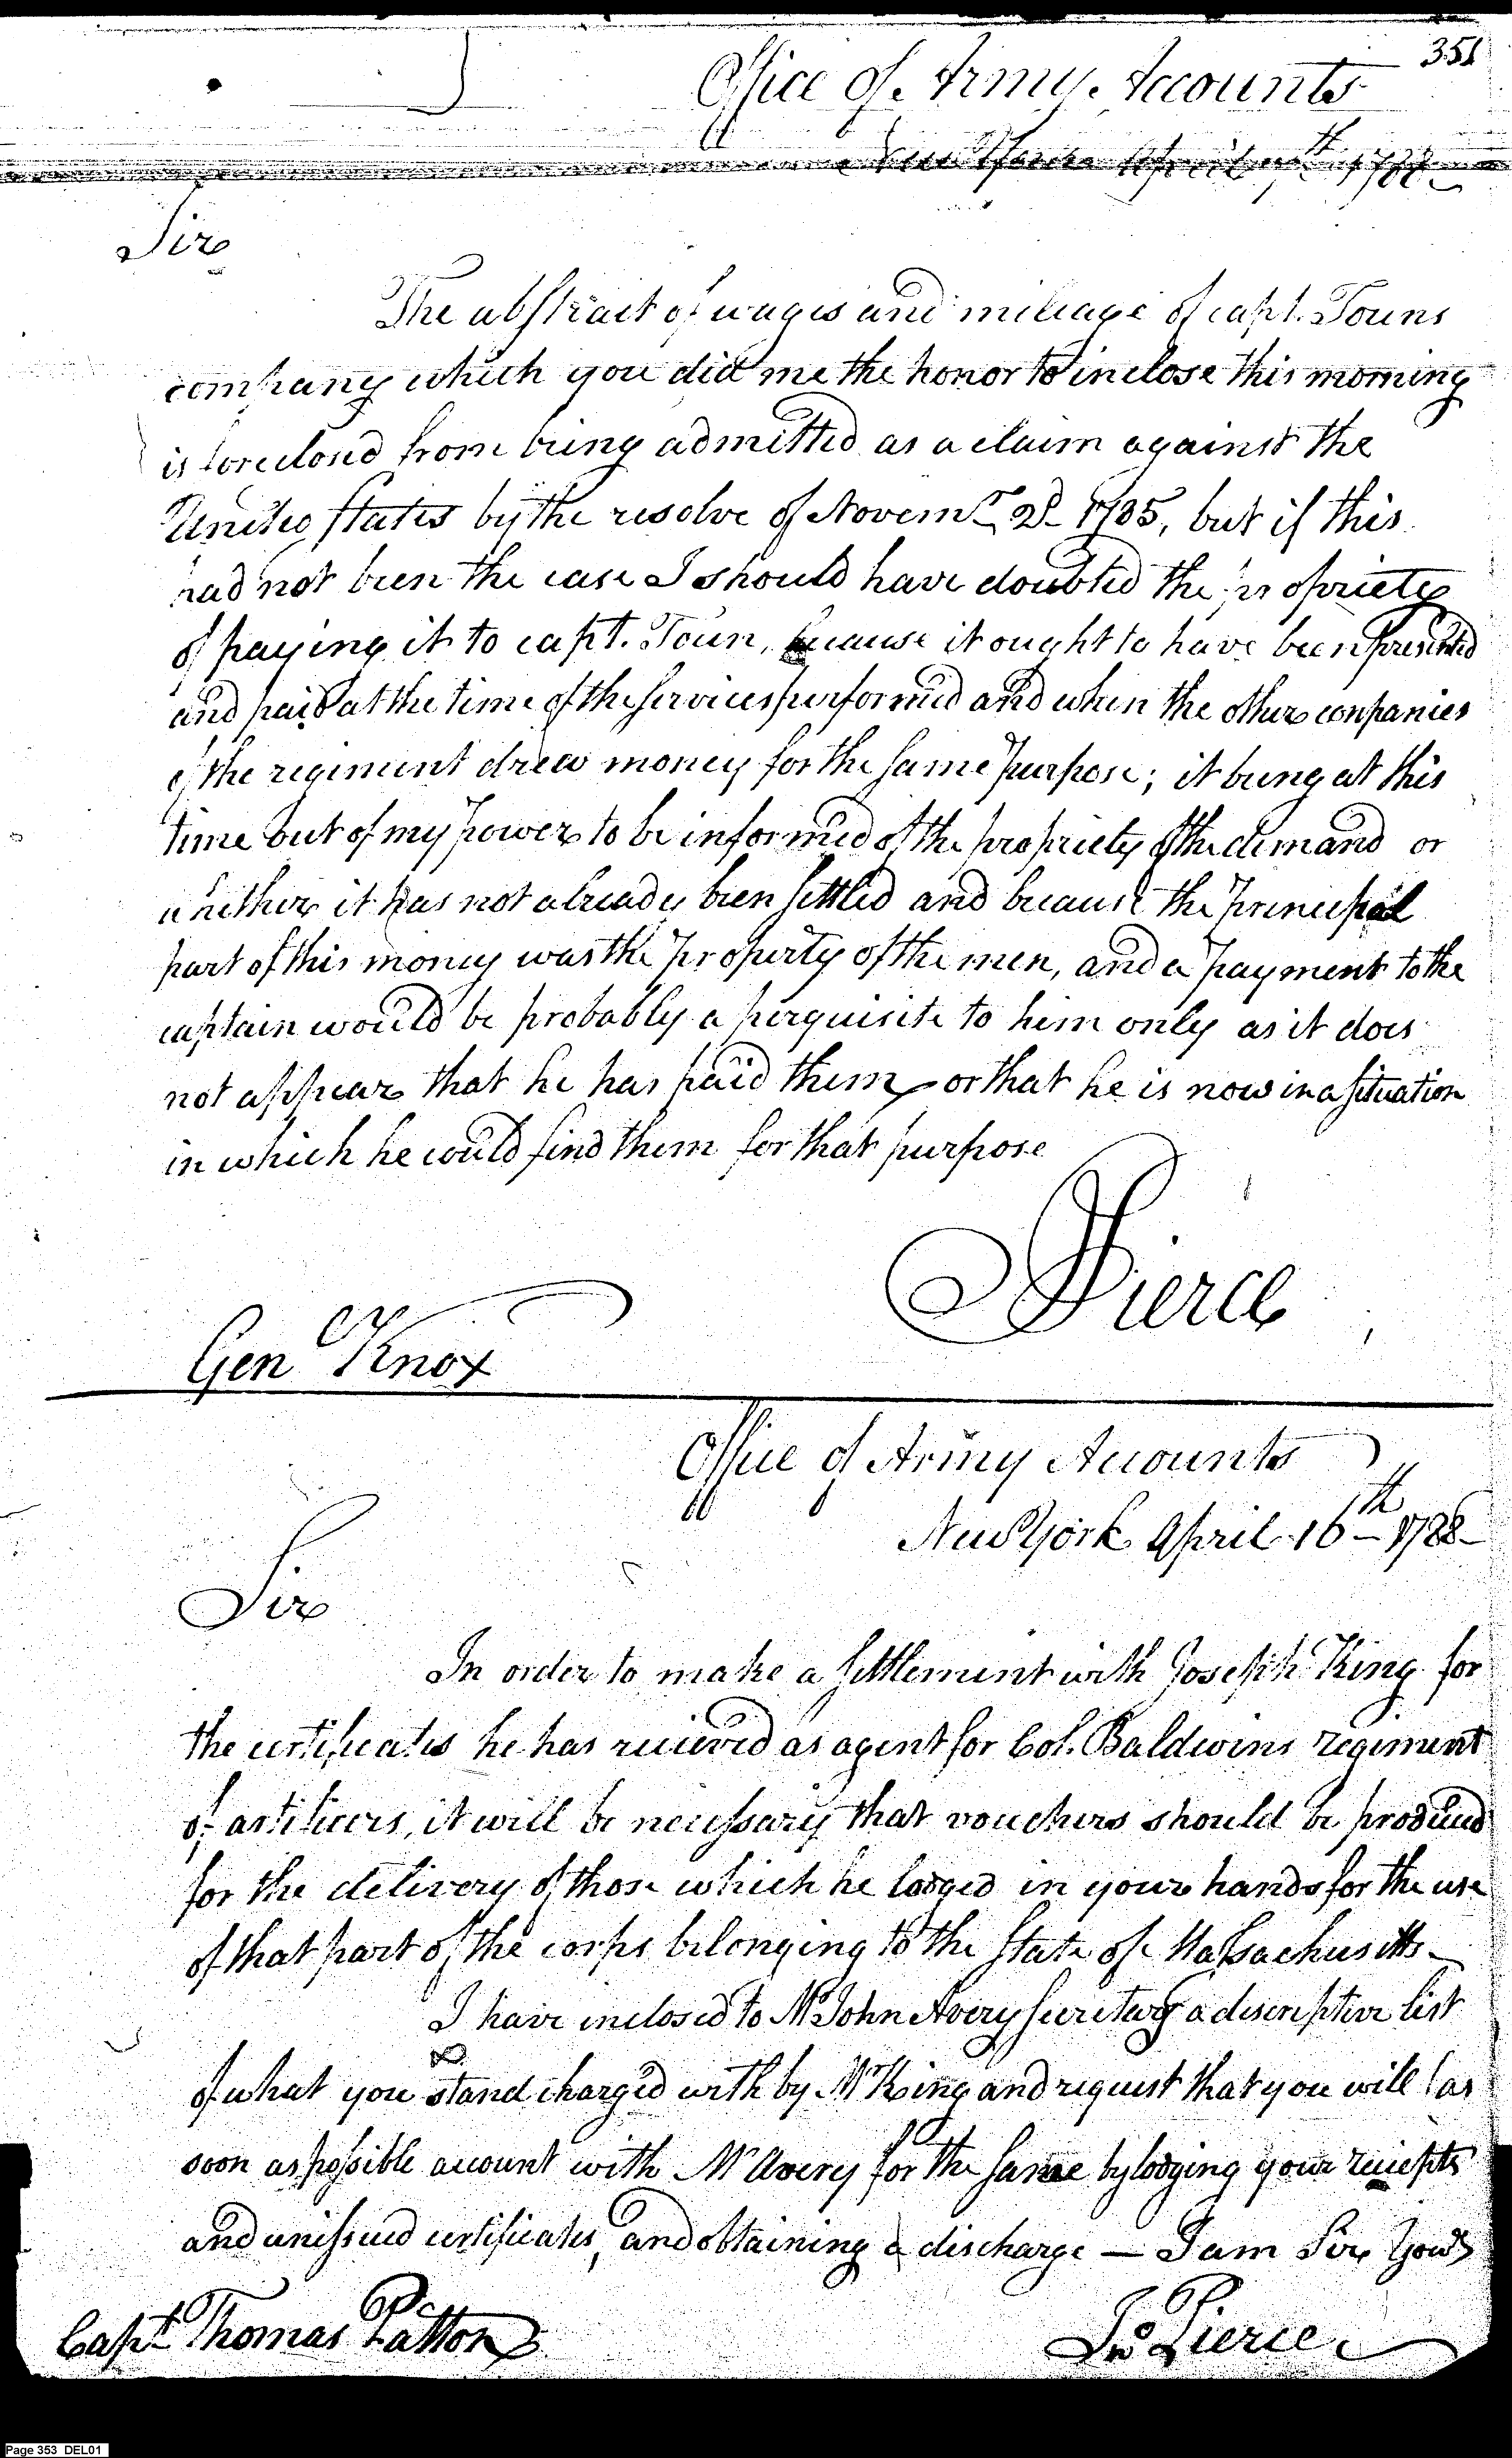 351
Office of Army Accounts
New York April 7th 1788
Sir
The abstract of wages and mileage of capt. Touns
company which you did me the honor to inclose this morning
is foreclosed from being admitted as a claim against the
United States by the resolve of Novemr 2d 1785, but if this
had not been the case I should have doubted the propriety
of paying it to capt. Toun, because it ought to have been presented
and paid at the time of the services performed and when the other companies
of the regiment drew money for the same purpose; it being at this
time out of my power to be informed of the propriety of the demand or
whether it has not already been settled and because the principal
part of this money was the property of the men, and a payment to the
captain would be probably a perquisite to him only as it does
not appear that he has paid them or that he is now in a situation
in which he could find them for that purpose
Pierce
Gen Knox
Office of Army Accounts
New York April 16th 1788
Sir
In order to make a settlement with Joseph King for
the certificates he has recieved as agent for Col. Baldwins regiment
of artificers, it will be necessary that vouchers should be produced
for the delivery of those which he lodged in your hands for the use
of that part of the corps belonging to the State of Massachusetts
I have inclosed to Mr John Avery Secretary a descriptive list
of what you stand charged with by Mr King and request that you will as
soon as possible account with Mr Avery for the same by lodging your reciepts
and unissued certificates, and obtaining a discharge — I am Sir Yours
Capt Thomas Patton
Jno Pierce
Page 353 DEL01